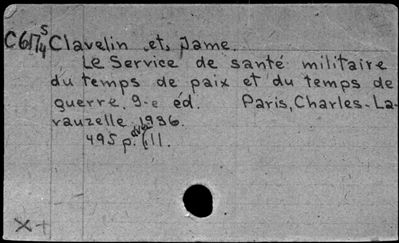 C617 5/4 Clavelin et Jame.
Le Service de santé militaire
du temps de paix et du temps de
guerre. 9-e éd. Paris, Charles-La-
vauzelle 1936.
495 p. ill.
X+